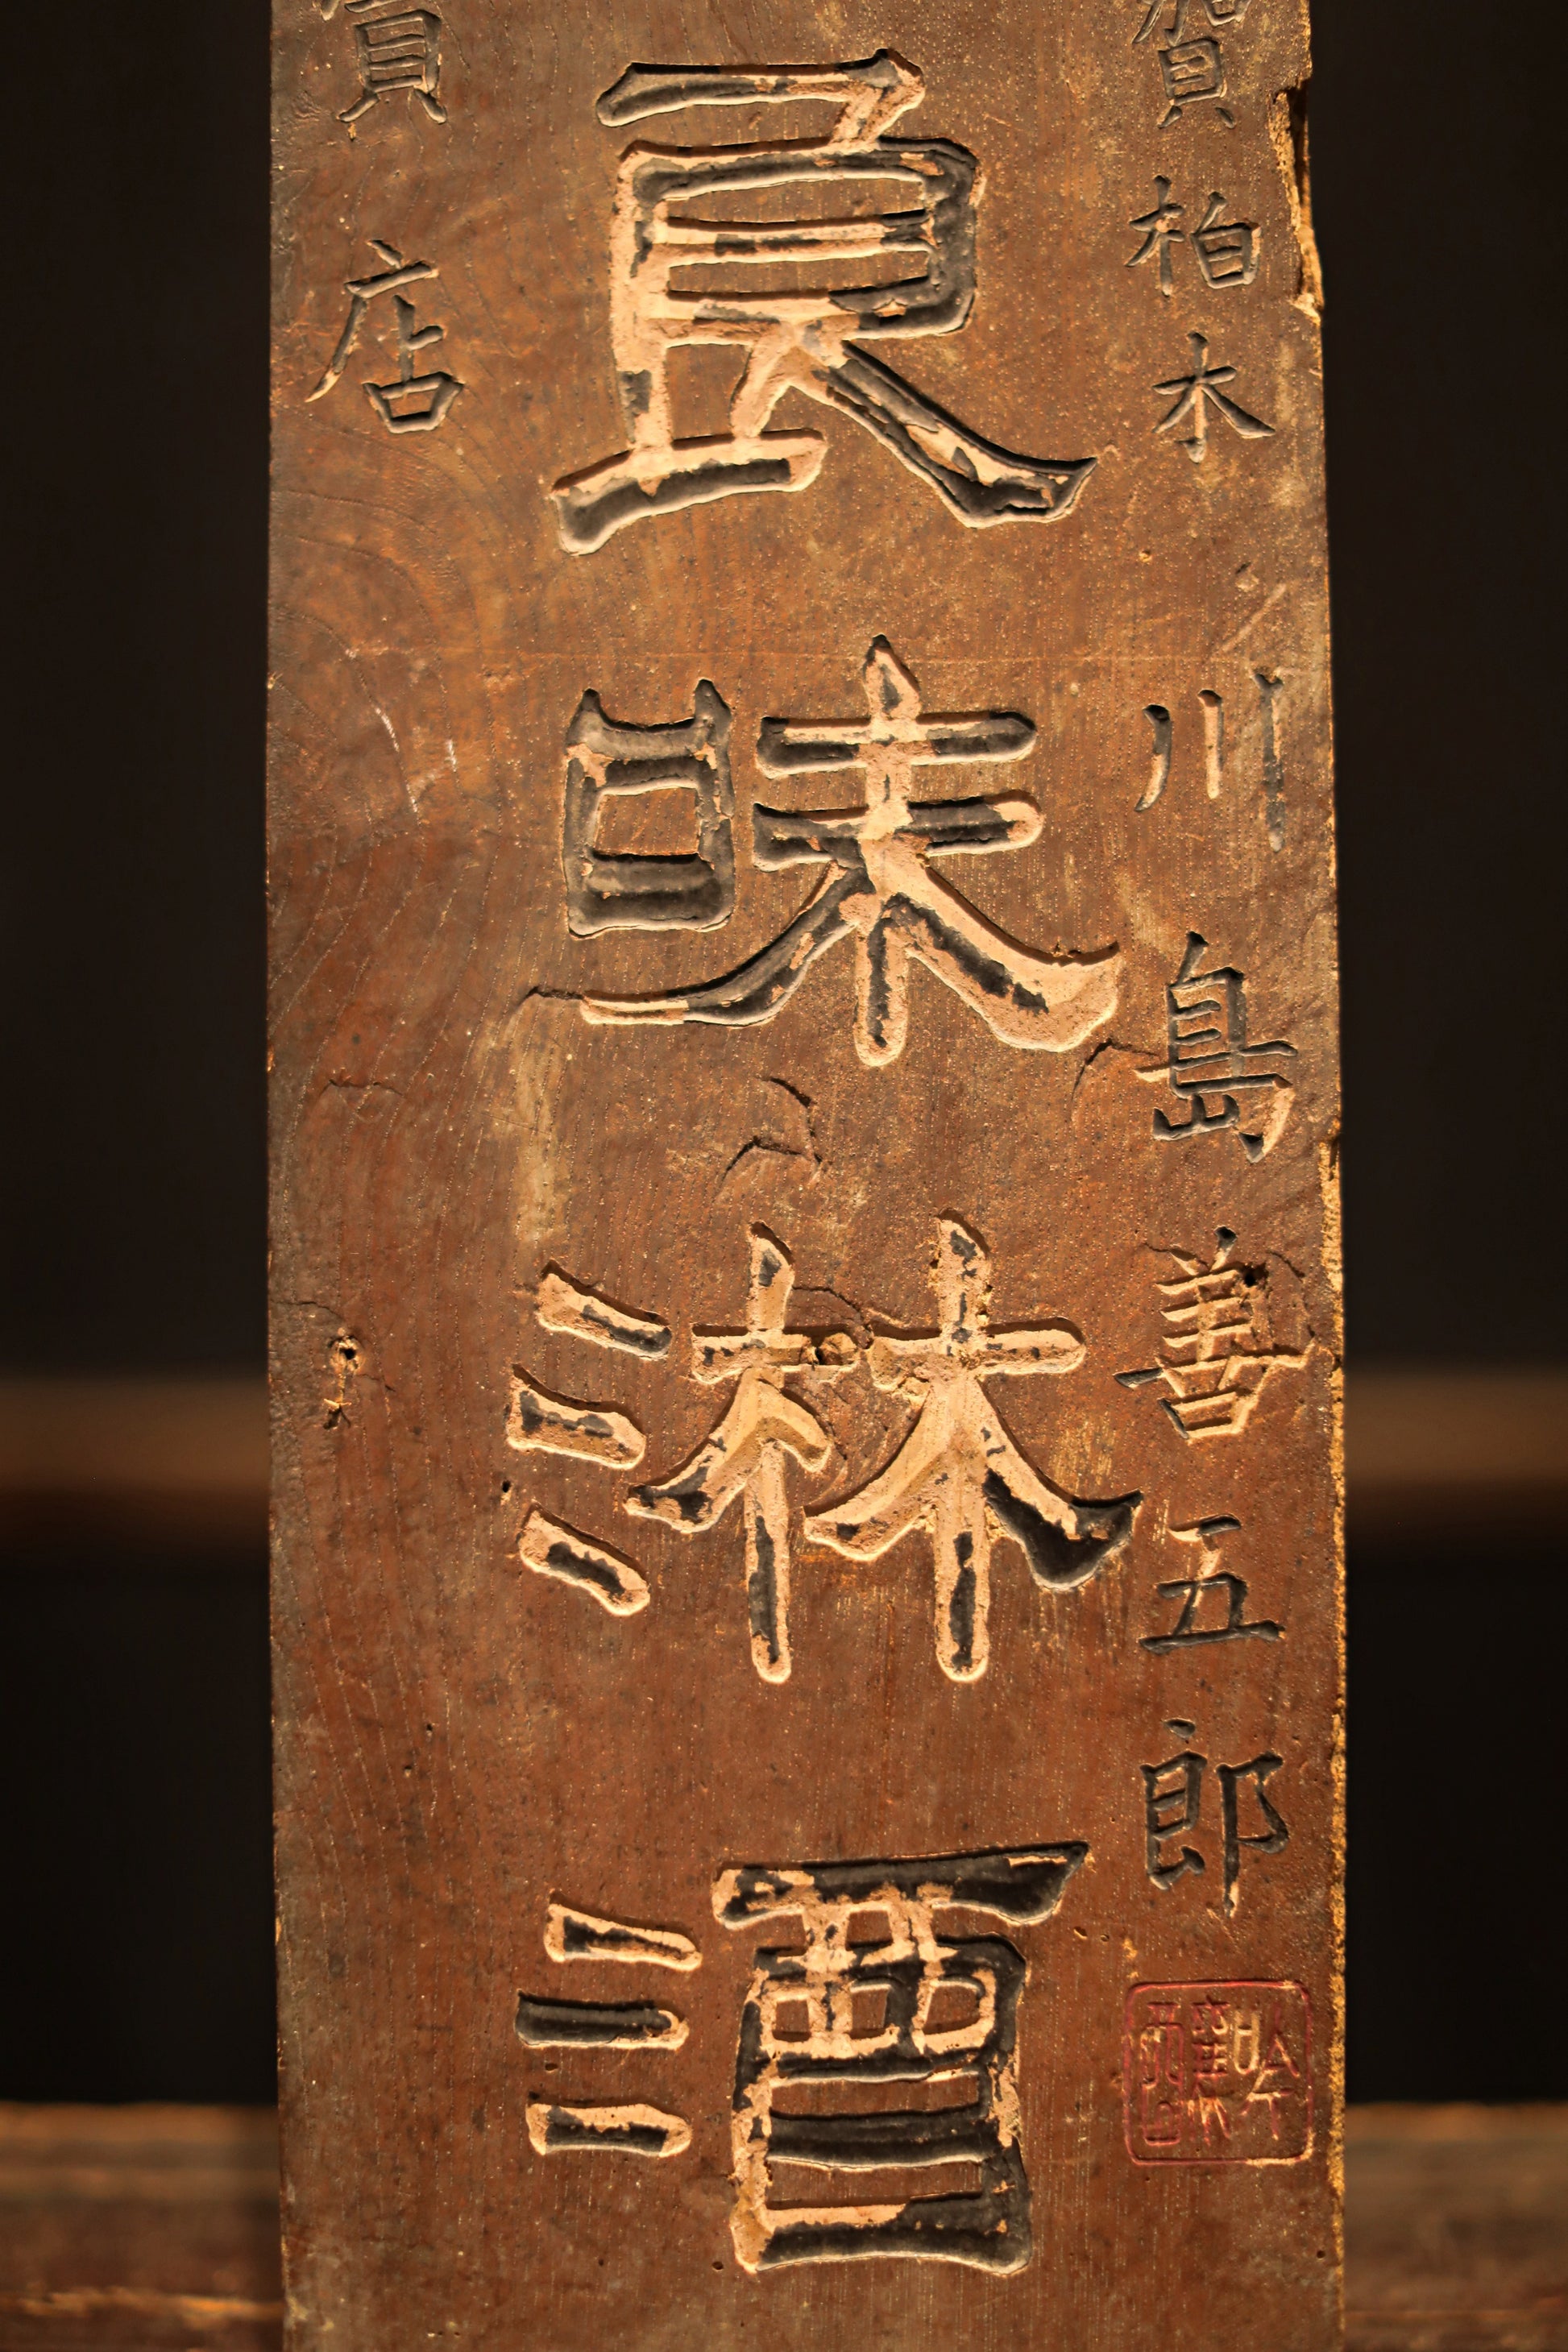 賀柏木川島善五郎
良味淋漕
賣店